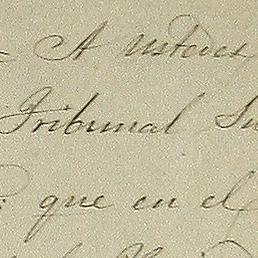 A Ustedes
Tribunal Su
que en el